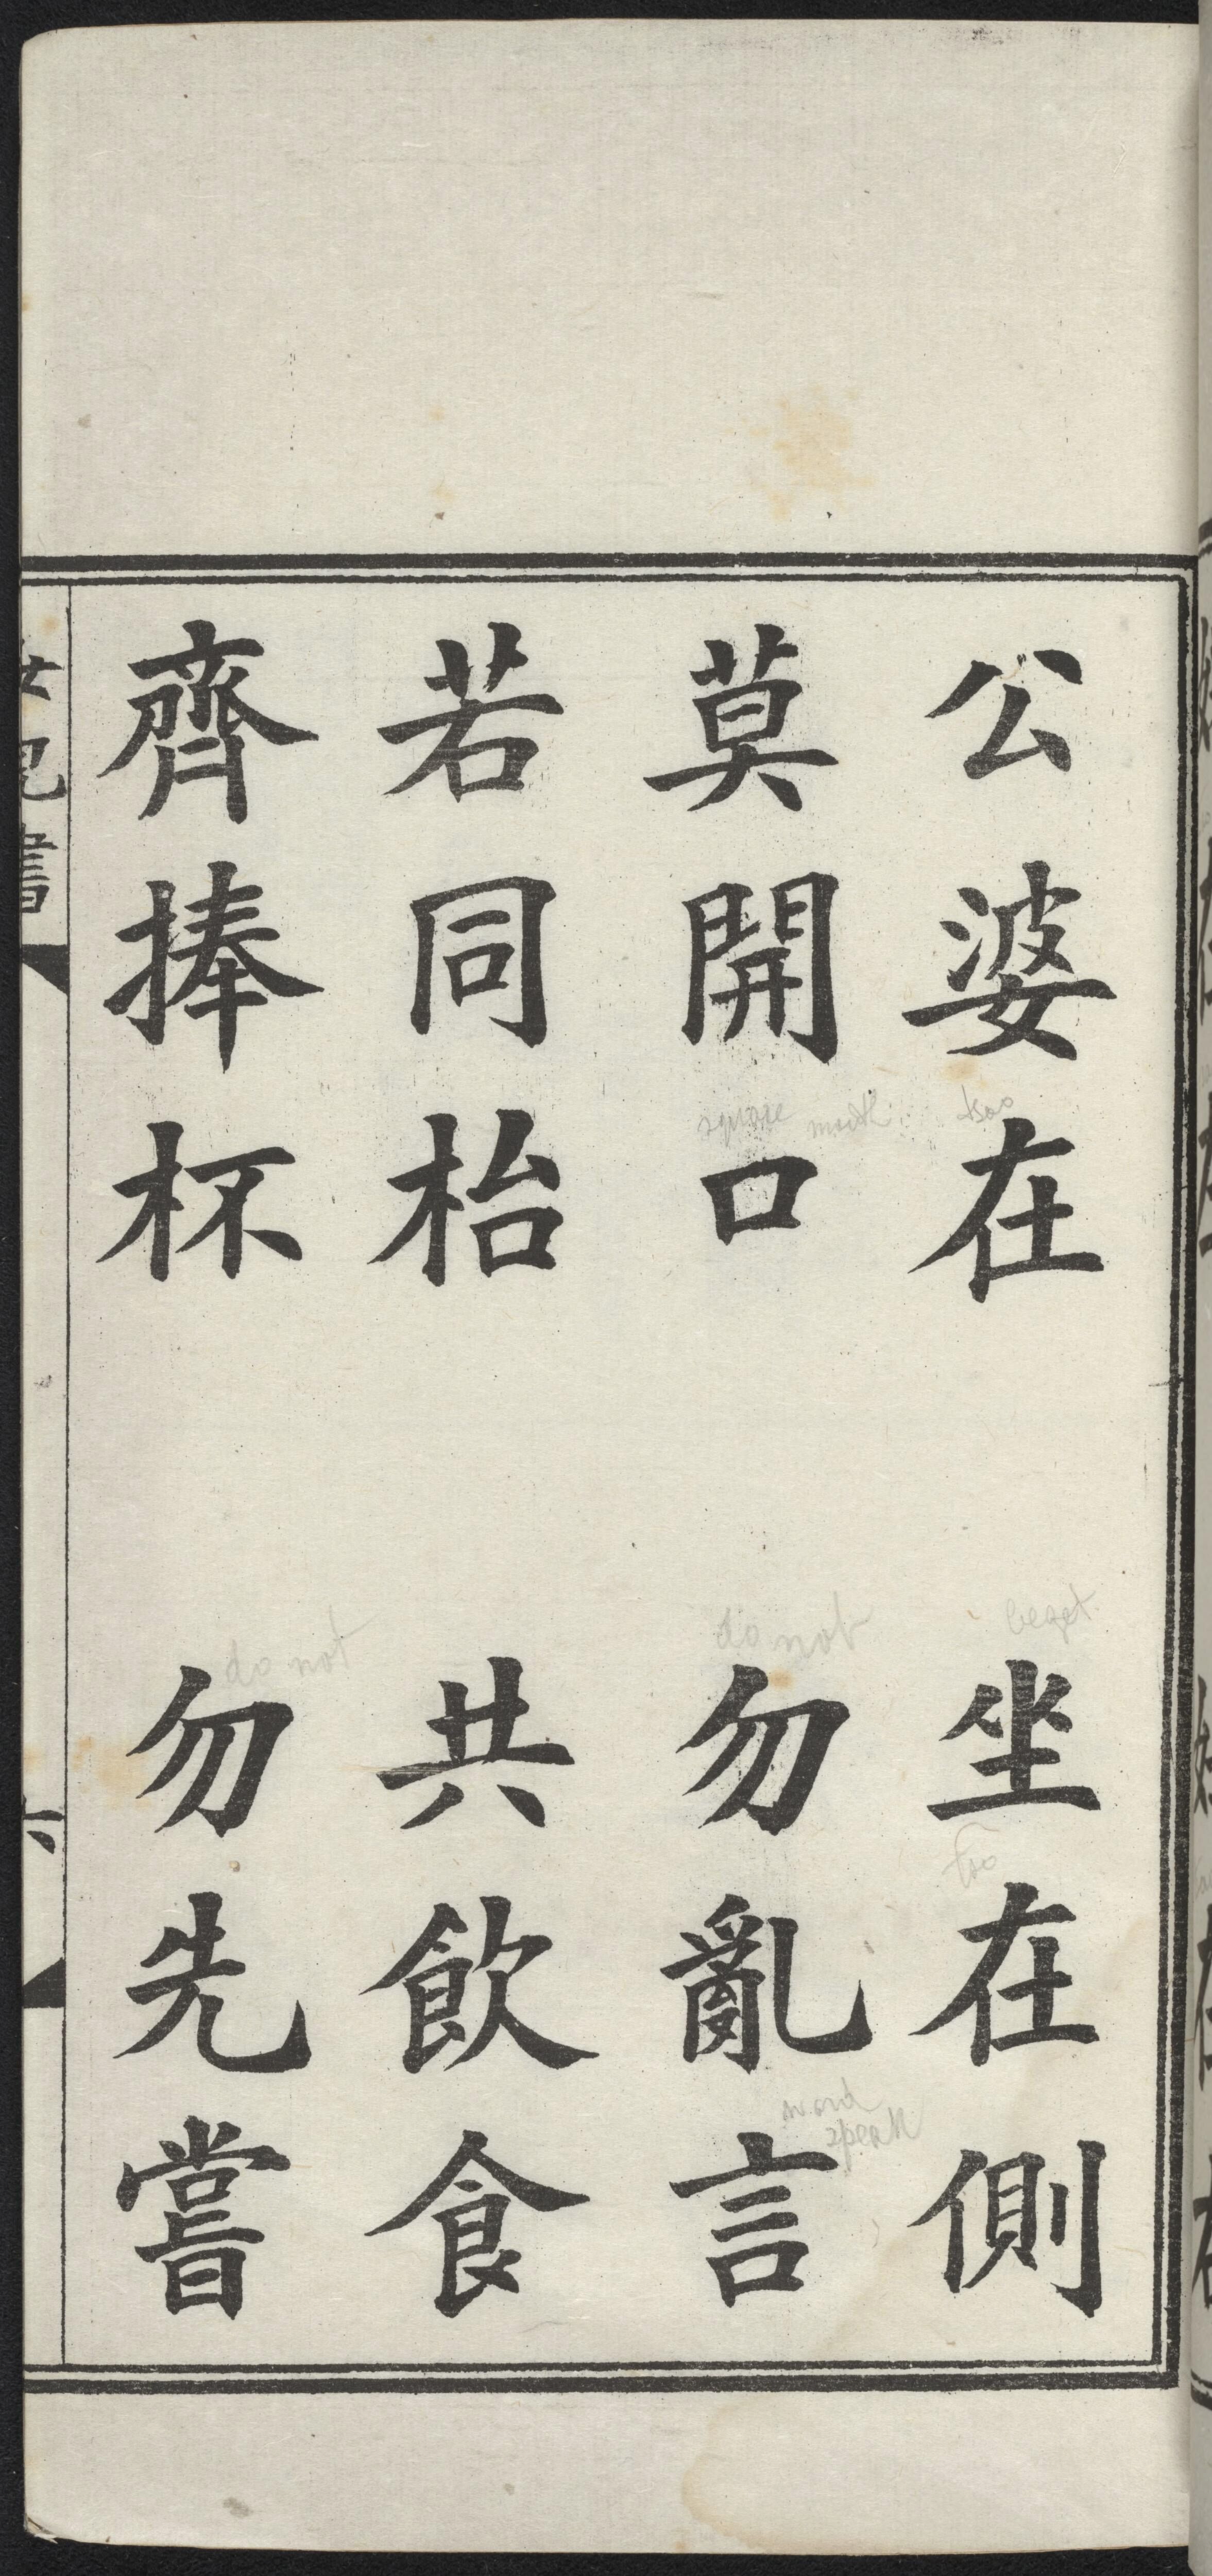 公婆在 坐在側
莫開口 勿亂言
若同枱 共飲食
齊捧杯 勿先嘗
六
square mouth
do not
do not
beget
word
speak